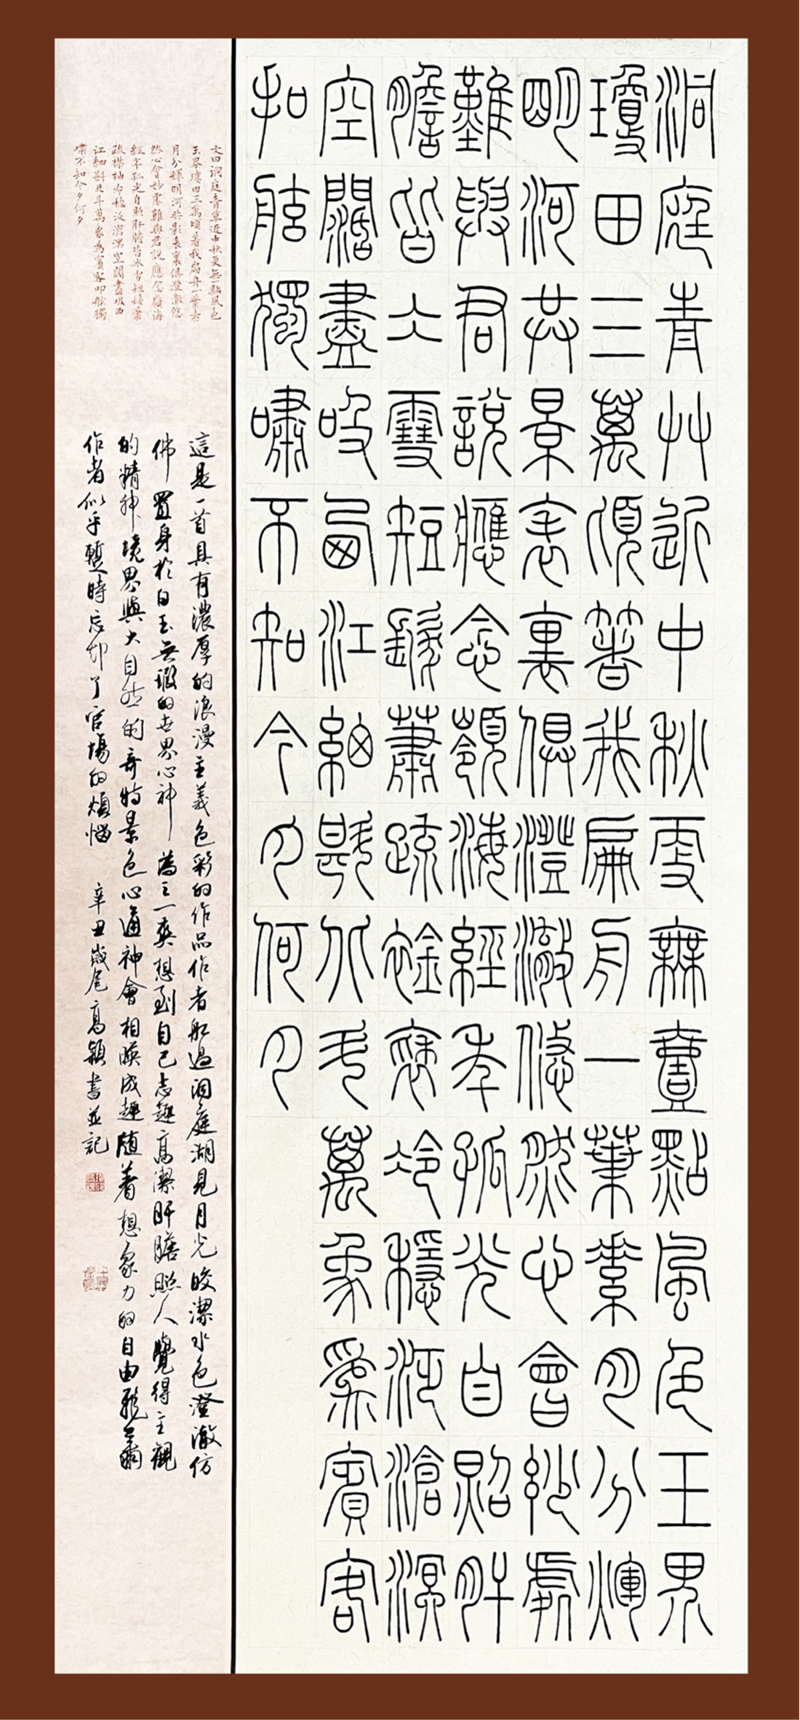 洞庭青艸近中秋更無壹點風色玉界
瓊田三萬頃著我扁舟一葉素月分輝
明河共景表裏俱澄澈悠然心會妙處
難與君說應念嶺海經年孤光自照肝
膽皆仌雪短髮蕭疏襟袖冷穩泛滄溟
空闊盡吸西江細斟北斗萬象為賓客
扣舷獨嘯不知今夕何夕
文曰洞庭青草近中秋更無點風色
玉界瓊田三萬頃着我扁舟一葉素
月分輝明河共影表裏俱澄澈悠
然心會妙處難與君說應念嶺海
經年孤光自照肝膽皆冰雪短髮蕭
疏襟袖冷穩泛滄溟空闊盡吸西
江細斟北斗萬象為賓客叩舷獨
嘯不知今夕何夕
這是一首具有濃厚的浪漫主義色彩的作品作者船過洞庭湖見月光皎潔水色澄澈仿
佛置身於白玉無瑕的世界心神為之一爽想到自己志趣高潔肝膽照人覺得主觀
的精神境界與大自然的奇特景色心通神會相映成趣随着想象力的自由飛翔
作者似乎暫時忘却了官場的煩惱 辛丑歲尾高穎書並記